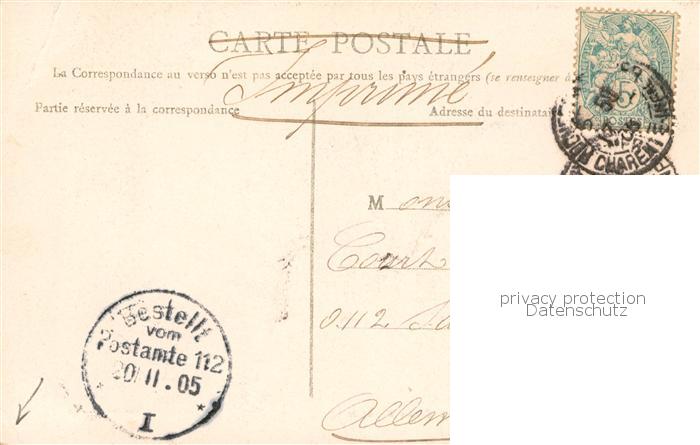 CARTE POSTALE
La Correspondance au verso n'est pas acceptée par tous les pays étrangers (se renseigner à
Imprimé
Partie réservée à la correspondance
Adresse du destinataire
5
POSTES
CHARENT
M
Court
privacy protection
Datenschutz
Bestellt
vom
Postamte 112
20/11.05
I
Allem